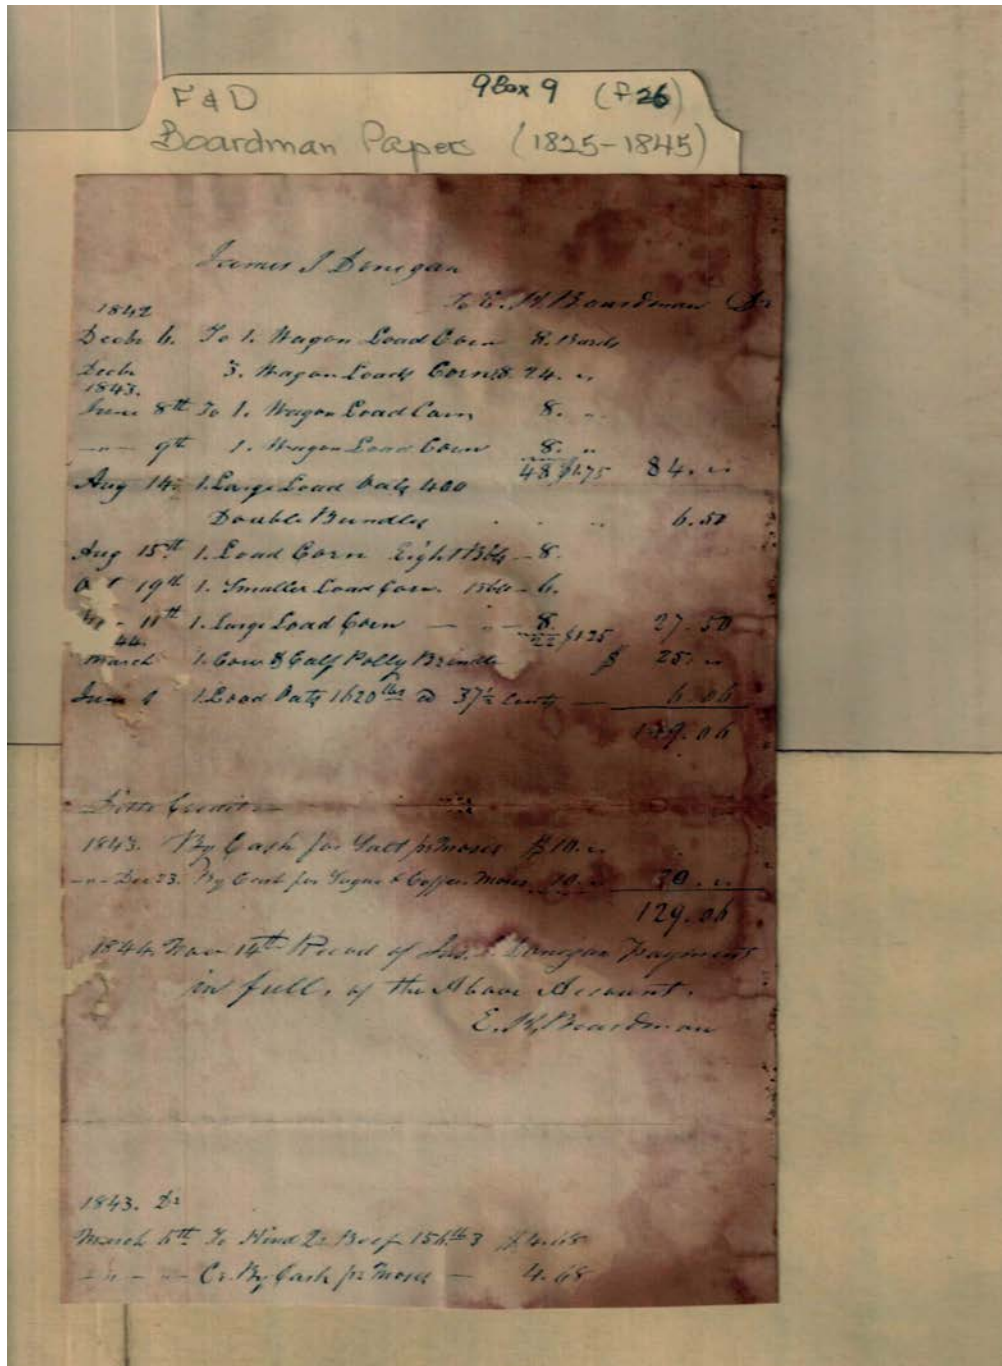 F & D 9Box 9 (F26)
Boardman Papers (1825-1845)
James J Donegan
To E. H. Boardman Dr
1842
Decbr 6. To 1. Wagon Load Corn 8. Barls
Decbr 3. Wagon Loads Corn 8. 24. "
1843.
June 8th To 1. Wagon Load Corn 8. "
" 9th 1. Wagon Load Corn 8. "
48 $1.75 84. "
Aug 14. 1. Large Load Oats 400
Double Bundles " 6.50
Aug 15th 1. Load Corn Eight Bbls - 8.
19th 1. Smaller Load Corn. Bbls - 6.
11th 1. Large Load Corn — " — 8.
22 $1.25 27.50
44.
March 1. Cow & Calf Polly Brindle $ 25. "
June 1. Load Oats 1620 lbs @ 37½ Cents — 6.06
149.06
Credit
1843. By Cash for Salt pr Moses $10. "
" Dec 23. By Cash for Sugar & Coffee Moses 10. " 20. "
129.06
1844. Nov 14th Recvd of Jas. J. Donegan Payment
in full. of the Above Account.
E. H. Boardman
1843. Dr
March 6th To Hind Qr Beef 156 lb 3 $4.68
" " Cr. By Cash pr Moses — 4.68